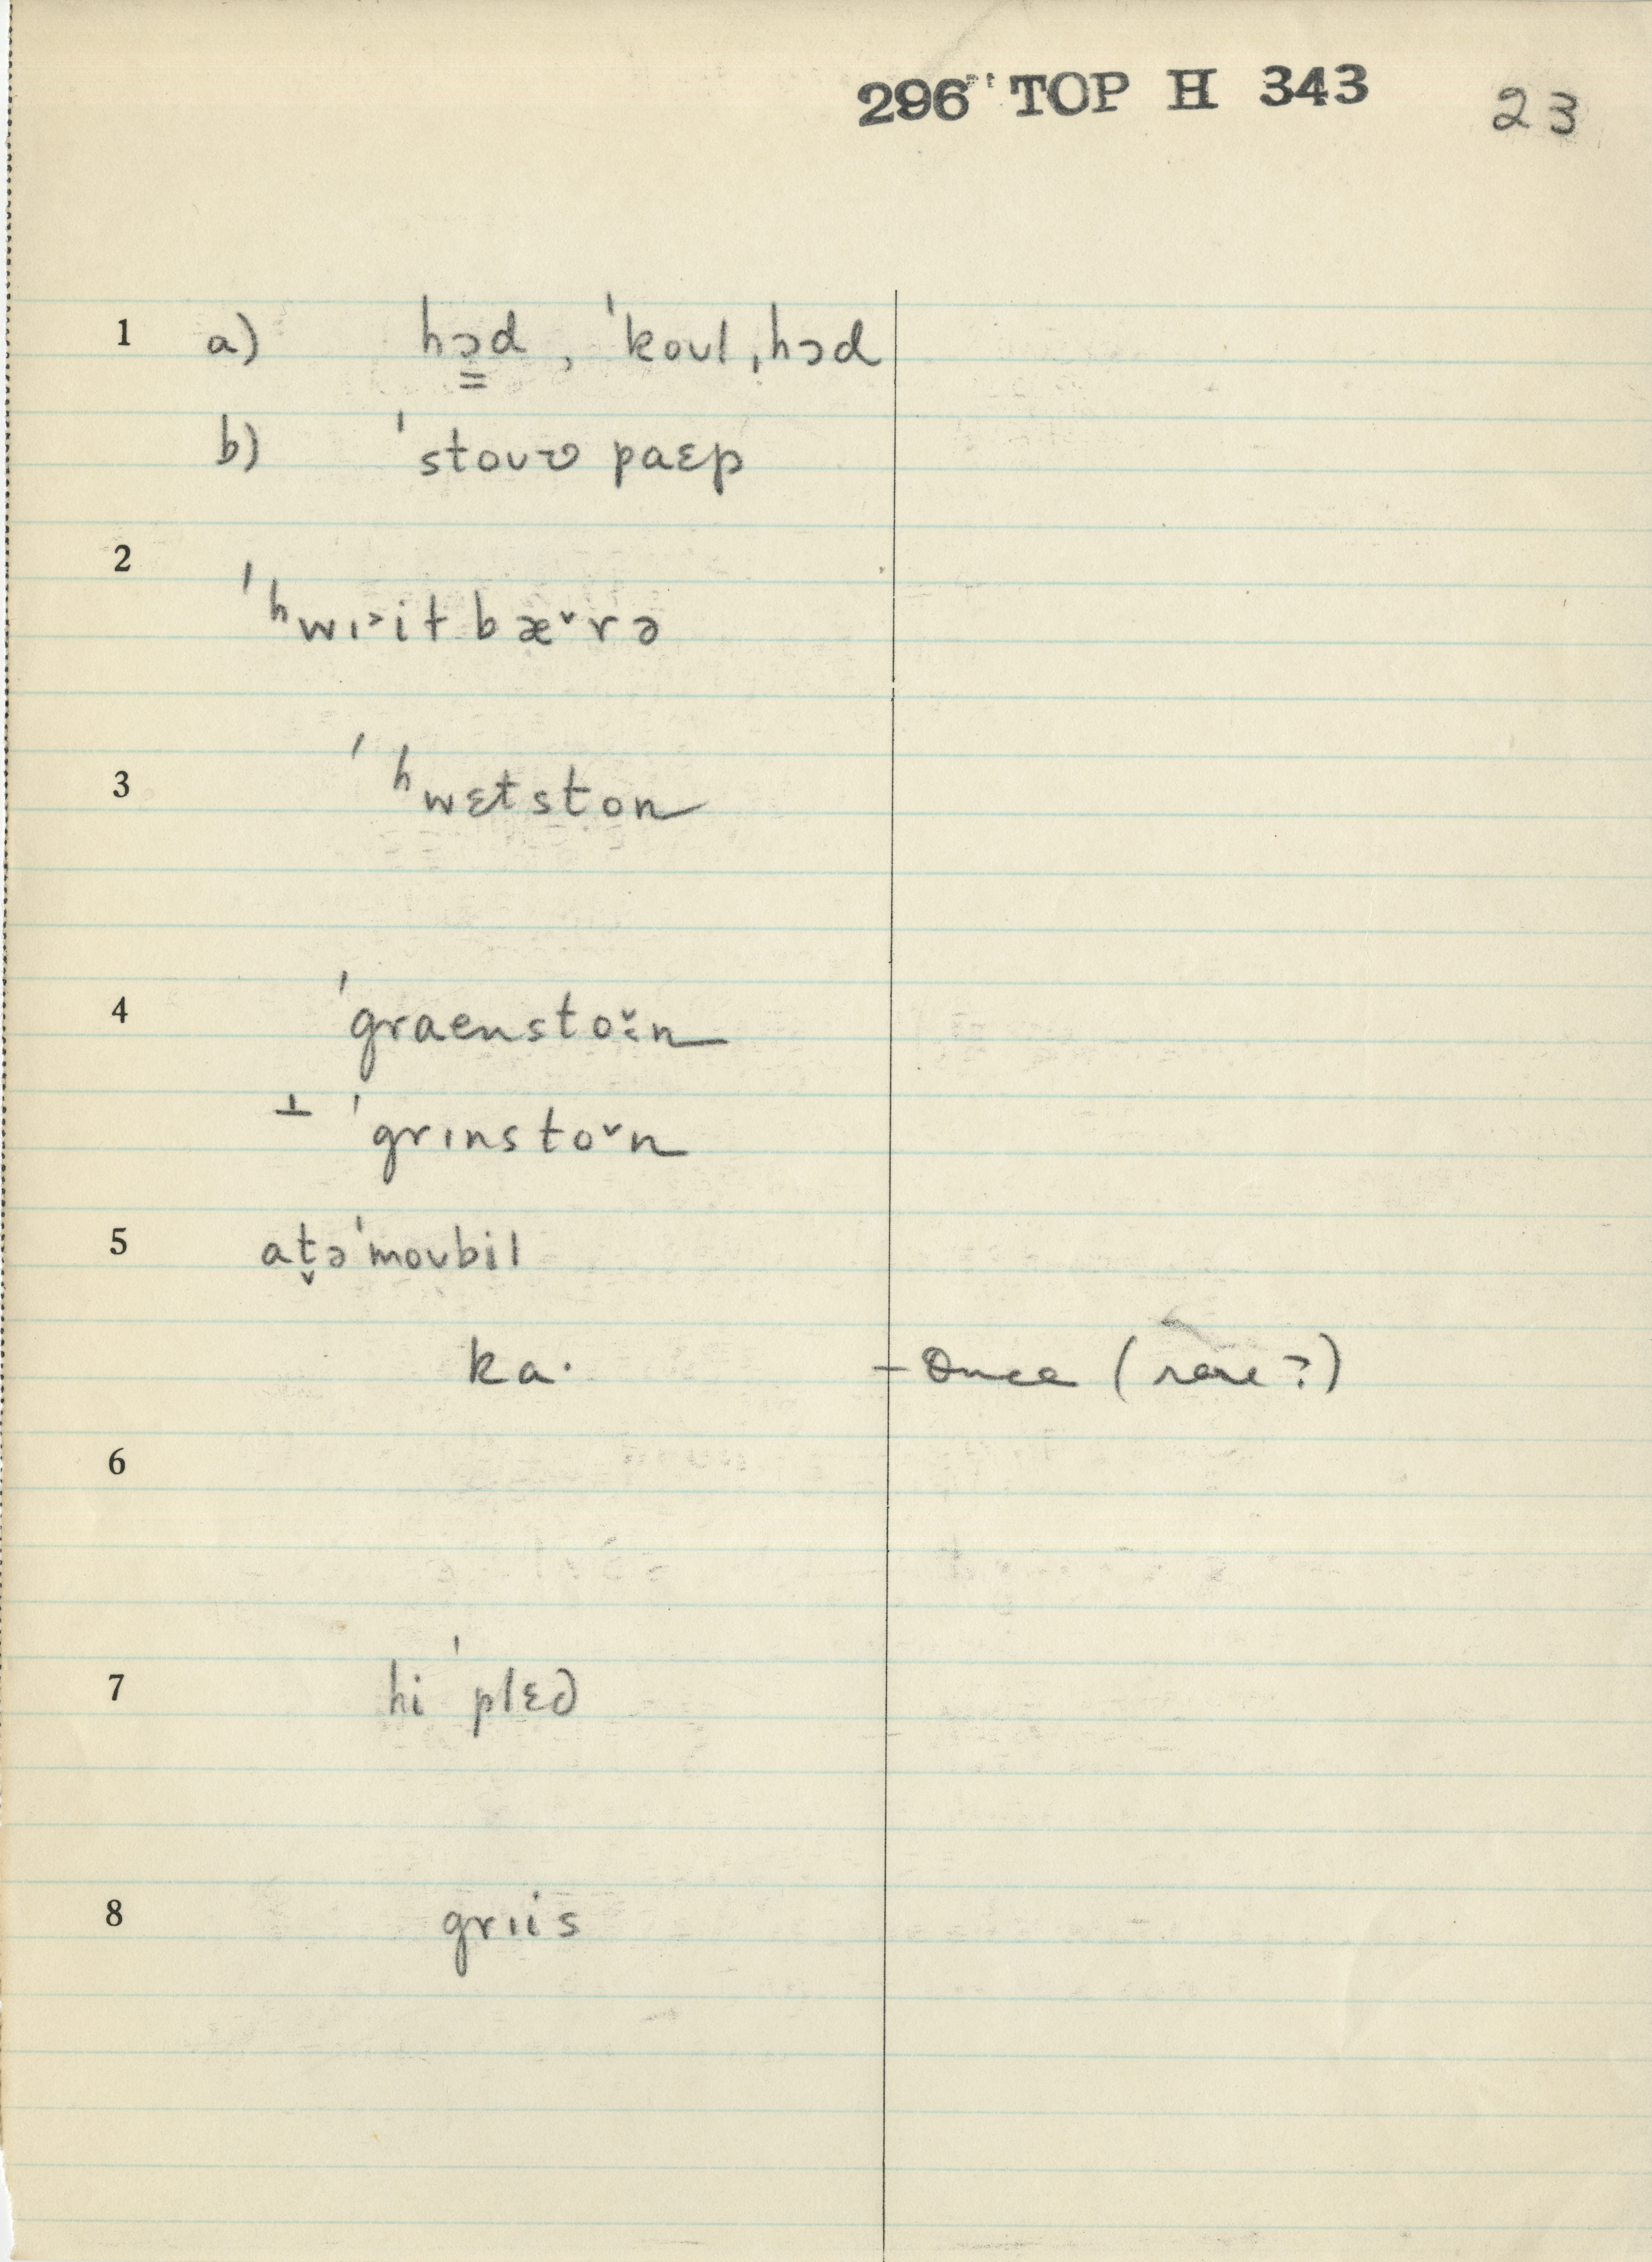 296" TOP H 343 23
1 a) hɔ̳d , ˈkoʊl ˌhɔd
b) ˈstoʊʋ paɛp
2 ˈʰwɪ˃itbæ˅rə
3 ˈ ʰwɛtston
4 ˈgraenstoɪ̌n
⊥ ˈgrɪnsto˅n
5 at̬əˈmoʊbil
ka· - Once (rare?)
6
7 hi ˈplɛd
8 grɪis